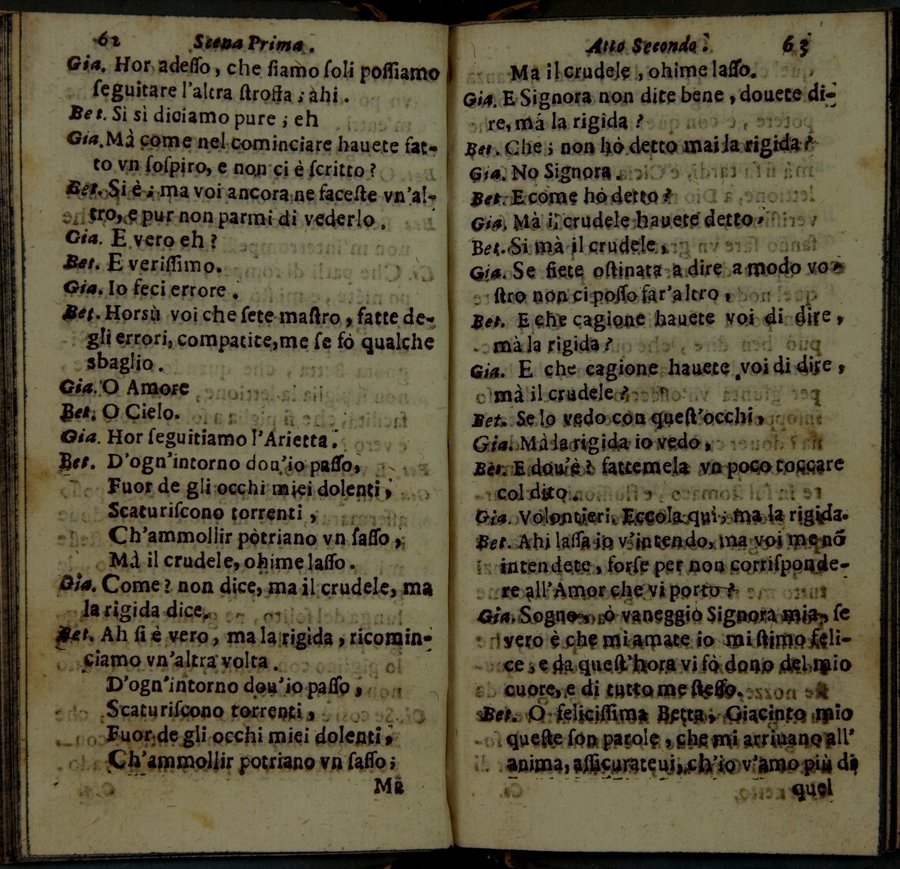 62 Scena Prima.
Gia. Hor adeſſo, che ſiamo ſoli poſſiamo
ſeguitare l'altra ſtroffa; ahi.
Bet. Si sì diciamo pure; eh
Gia. Mà come nel cominciare hauete fat-
to vn ſoſpiro, e non ci è ſcritto?
Bet. Si è; ma voi ancora ne faceſte vn'al-
tro, e pur non parmi di vederlo.
Gia. E vero eh?
Bet. E veriſſimo.
Gia. Io feci errore.
Bet. Horsù voi che ſete maſtro, fatte de-
gli errori, compatite, me ſe fò qualche
sbaglio.
Gia. O Amore
Bet. O Cielo.
Gia. Hor ſeguitiamo l'Arietta.
Bet. D'ogn'intorno dou'io paſſo,
Fuor de gli occhi miei dolenti,
Scaturiſcono torrenti,
Ch'ammollir potriano vn ſaſſo,
Mà il crudele, ohime laſſo.
Gia. Come? non dice, ma il crudele, ma
la rigida dice.
Bet. Ah ſi è vero, ma la rigida, ricomin-
ciamo vn'altra volta.
D'ogn'intorno dou'io paſſo,
Scaturiſcono torrenti,
Fuor de gli occhi miei dolenti,
Ch'ammollir potriano vn ſaſſo;
Ma
Atto Secondo. 63
Ma il crudele, ohime laſſo.
Gia. E Signora non dite bene, douete di-
re, má la rigida?
Bet. Che; non hò detto mai la rigida?
Gia. No Signora.
Bet. E come hò detto?
Gia. Mà il crudele hauete detto.
Bet. Si mà il crudele,
Gia. Se ſiete oſtinata a dire a modo vo-
ſtro non ci poſſo far'altro,
Bet. E che cagione hauete voi di dire,
mà la rigida?
Gia. E che cagione hauete voi di dire,
mà il crudele?
Bet. Se lo vedo con queſt'occhi,
Gia. Mà la rigida io vedo,
Bet. E dou'è? fattemela vn poco toccare
col dito.
Gia. Volontieri. Eccola qui; ma la rigida.
Bet. Ahi laſſa io v'intendo, ma voi me nõ
intendete, forſe per non corriſponde-
re all'Amor che vi porto?
Gia. Sogno, ò vaneggio Signora mia, ſe
vero è che mi amate io mi ſtimo feli-
ce, e da queſt'hora vi fò dono del mio
cuore, e di tutto me ſteſſo.
Bet. O feliciſſima Betta, Giacinto mio
queſte ſon parole, che mi arriuano all'
anima, aſſicurateui, ch'io v'amo più di
quel